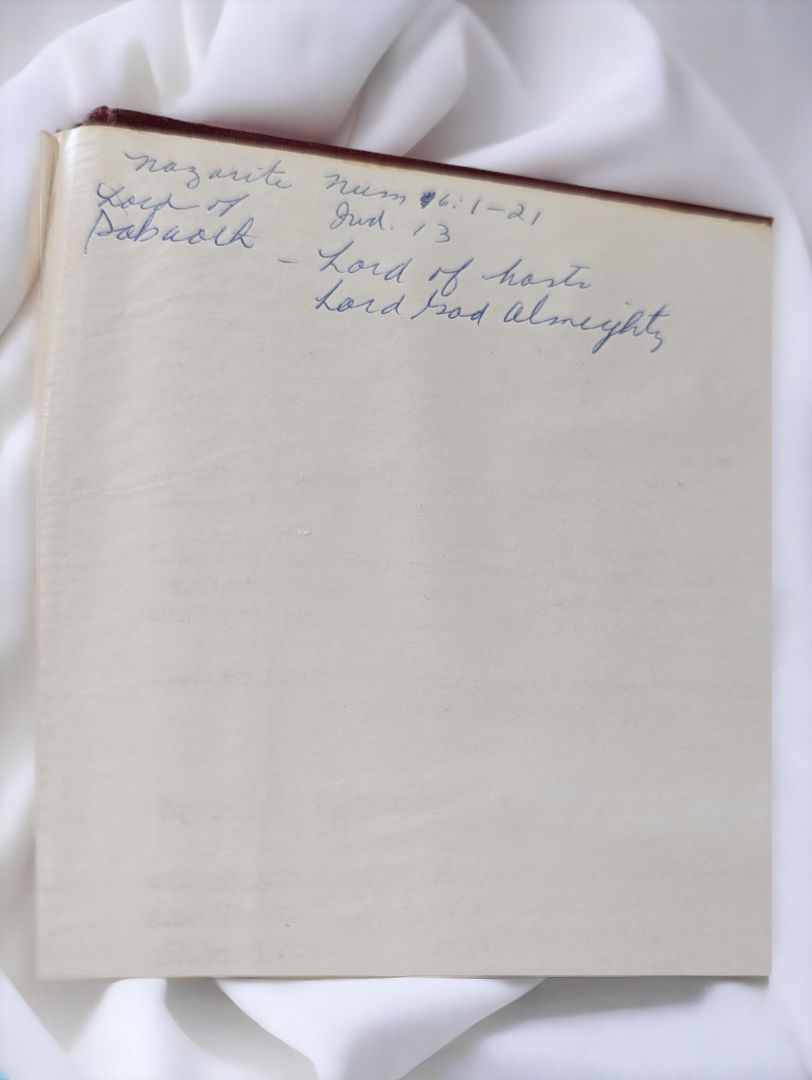 Nazarite Num 6:1-21
Lord of Jud. 13
Sabaoth - Lord of hosts
Lord God Almighty